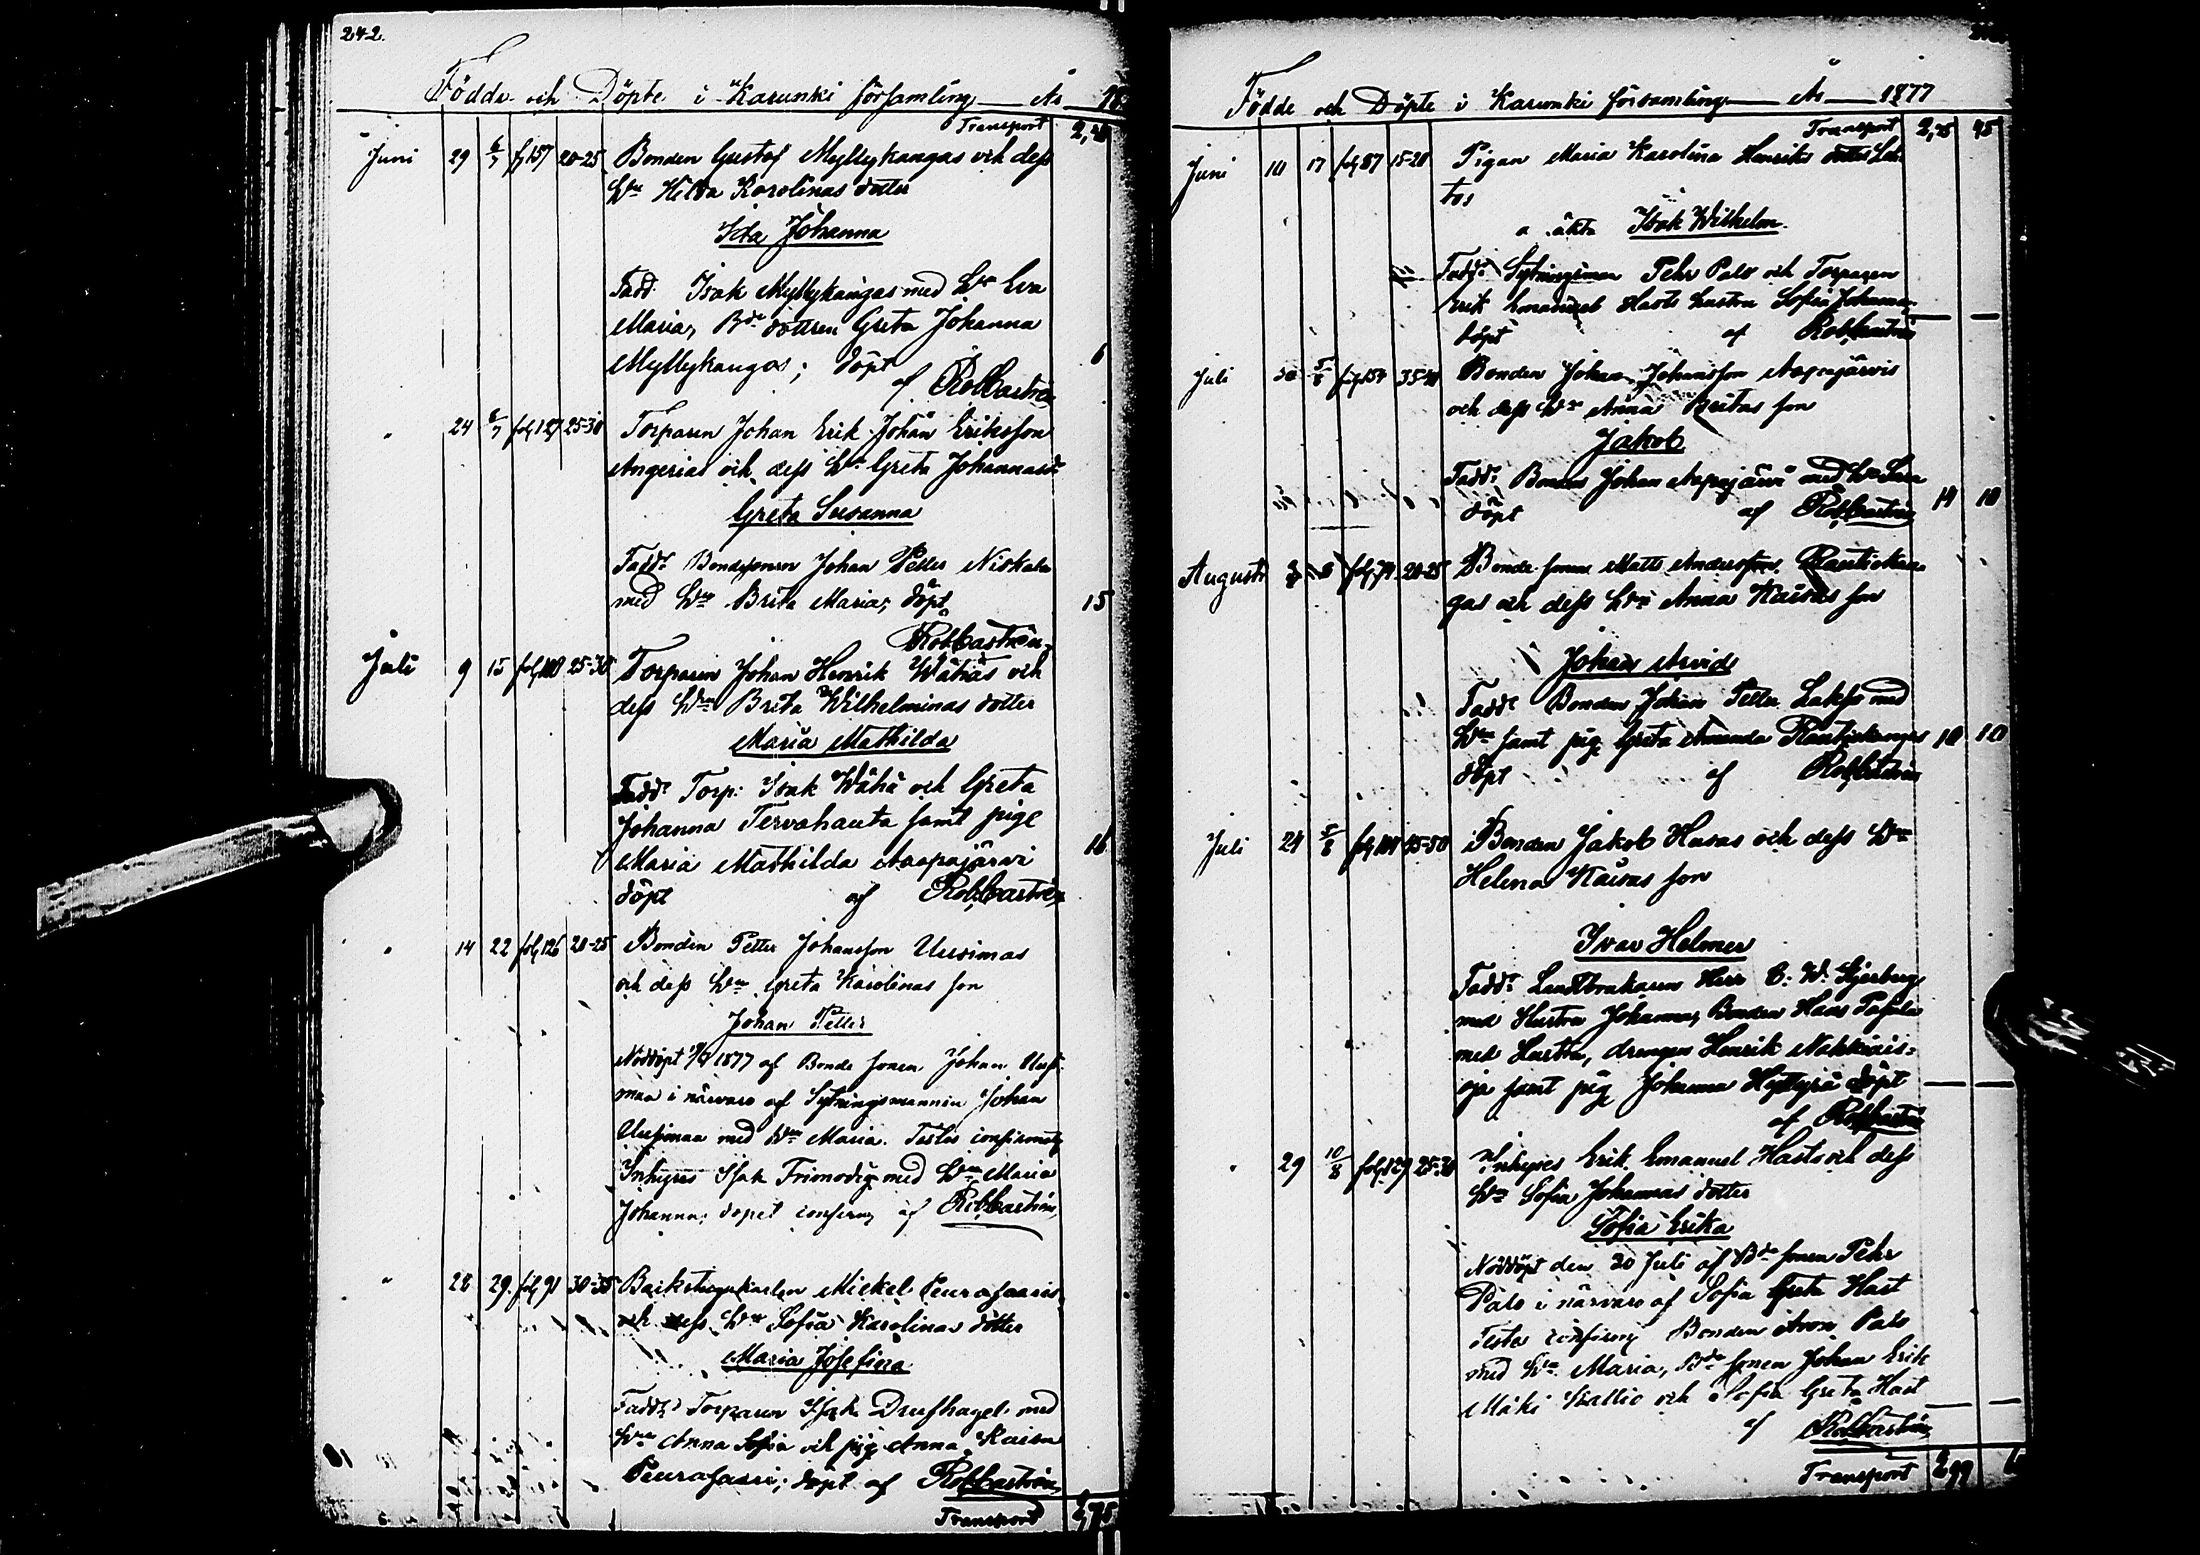 242.
Födde och Döpte i Karunki församling År 18
Transport 2,
Juni 29 6/7 f 157 20-25 Bonden Gustaf Myllykangas och dess
Hu Hilda Karolinas dotter
Ida Johanna
Fadd. Isak Myllykangas med Hu Eva
Maria, Bde dottren Greta Johanna
Myllykangas; döpt 6
af RobCastrén
" 24 8/7 fol 127 25-30 Torparen Johan Erik Johan Eriksson
Angerias och dess Hu Greta Johannas d
Greta Susanna
Fadd: Bondesonen Johan Petter Niskala
med Hu Brita Maria; döpt 15
RobCastrén
Juli 9 15 fol 25-30 Torparen Johan Henrik Wähäs och
dess Hu Brita Wilhelminas dotter
Maria Mathilda
Fadd: Torp: Isak Wähä och Greta
Johanna Tervahauta samt pige
Maria Mathilda Aapajärvi 16
döpt af RobCastrén
" 14 22 fol 126 20-25 Bonden Petter Johansson Uusimas
och dess Hu Greta Karolinas son
Johan Petter
Nöddöpt 1877 af Bonde sonen Johan Uusi
maa i närvaro af Sytningsmannen Johan
Uusimaa med Hu Maria. Testes confirmat
Inhyses Isak Frimodig med Hu Maria
Johanna; dopet confirm af RobCastrén
" 28 29. fol 91 30-35 Backstugukarlen Mickel Peurasaaris
och dess Hu Sofia Karolinas dotter
Maria Josefina
Fadd: Torparen Isak Drufhagel med
Hu Anna Sofia och pig Anna Kaisa
Peurasaari; döpt af RobCastrén
Transport 2,75
Födde och Döpte i Karunki församling År 1877
Transport 2,75 95
Juni 10 17 fol 87 15-20 Pigan Maria Karolina Henriks dotter Lak
tos
o äkta Isak Wilhelm
Fadd: Sytningsman Pehr Palo och Torparen
Erik Emanuel Hasts hustru Sofia Johanna
döpt af RobCastrén
Juli 30 5/8 fol 154 35-40 Bonden Johan Johansson Aapajärvis
och dess Hu Anna Britas son
Jakob
Fadd: Bonden Johan Aapajärvi med Hu
döpt af RobCastrén 14 10
Augusti fol 74 20-25 Bonde sonen Matts Andersson Rautiokan
gas och dess Hu Anna Kaisas son
Johan Arvid
Fadd: Bonden Johan Petter Lakso med
Hu samt pig Greta Amanda Rautiokangas 10 10
döpt af RobCastrén
Juli 24 5/8 fol 45-50 Bonden Jakob Husas och dess Hu
Helena Kaisas son
Ivar Helmer
Fadd: Landtbrukaren Herr C. W. Liljeberg
med Hustru Johanna, Bonden Hans
med Hustru, drengen Henrik Nakkiais-
oja samt pig Johanna döpt
af RobCastrén
" 29 10/8 fol 129 25-30 Inhyses Erik Emanuel Hasts och dess
Hu Sofia Johannas dotter
Sofia Erika
Nöddöpt den 30 Juli af Bde sonen Pehr
Palo i närvaro af Sofia Greta Hast
Testes confirm Bonden Aron Palo
med Hu Maria, Bde sonen Johan Erik
Mäki Kallio och Sofia Greta Hast
af RobCastrén
Transport 2,99 6